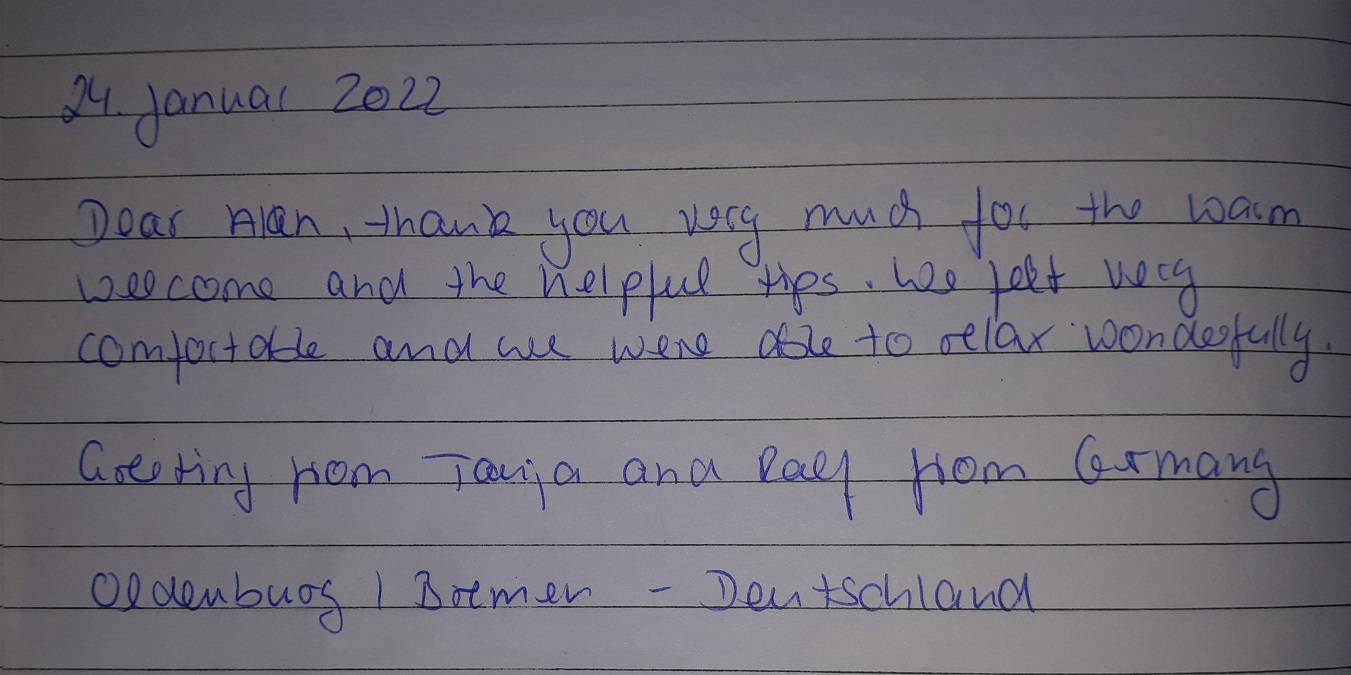 24. Januar 2022
Dear Alan, thank you very much for the warm
wellcome and the helpful tips. We felt very
comfortable and we were able to relax wonderfully.
Greeting from Tanja and Ralf from Germany
Oldenburg / Bremen - Deutschland